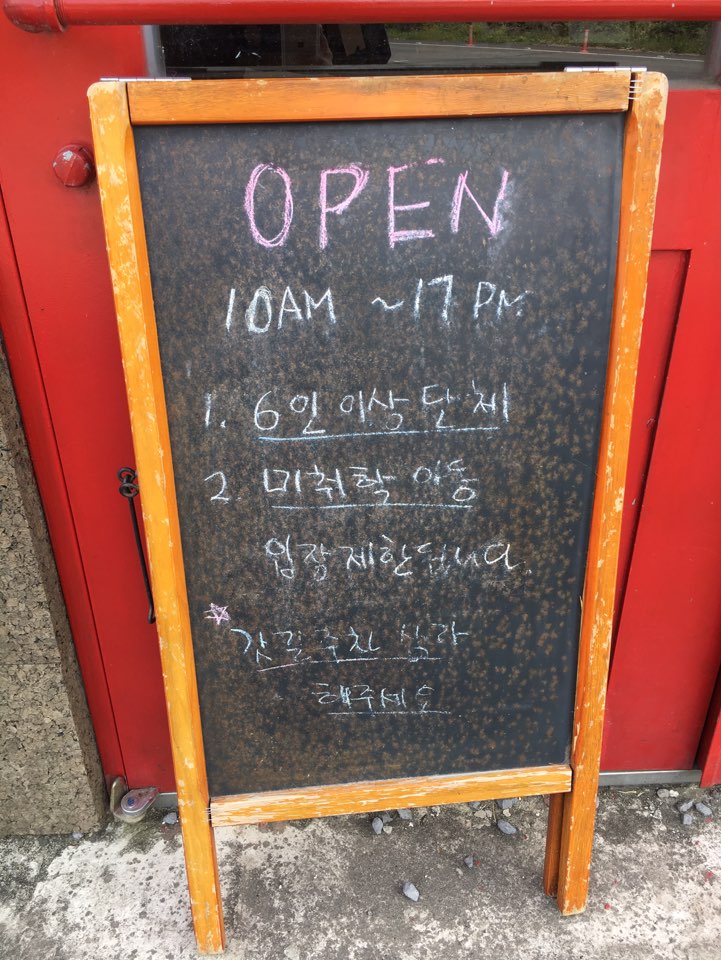 OPEN
10AM ~17PM
1. 6인 이상 단체
2. 미취학 아동
입장 제한됩니다.
☆ 갓길주차 삼가
해주세요